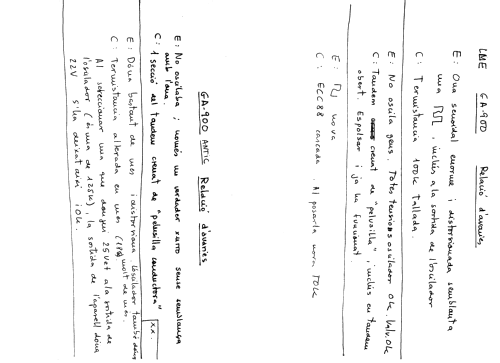 LME GA-900 Relació d'avaries
E: Ona senoidal enorme i distorsionada semblanta
una, inclús a la sortida de l'oscilador
C: Termistancia 100K Tallada.
E: No oscila gens. Totes tensions oscilador OK. Valv. OK
C: Tandem creuat de "pelusilla", inclús en tandem
obert. Espolsar i ja ha funcionat.
E: nova
C: ECC88 cascada. Al posarla nova TOT OK
GA-900 ANTIC Relació d'avaries
E: No oscilaba; només un verdader xurro sense semblança
amb l'ona.
C: 1 secció del tandem creuat de "pelusilla conductora" xx.
E: Dóna bastant de mes i distorsiona. L'oscilador també dóna
C: Termistancia alterada en mes ( molt de mes.
Al seleccionar una que dongui 25 Vef a la sortida de
l'oscilador (és una de 125K), la sortida de l'aparell dóna
22V s'ha deixat així i OK.